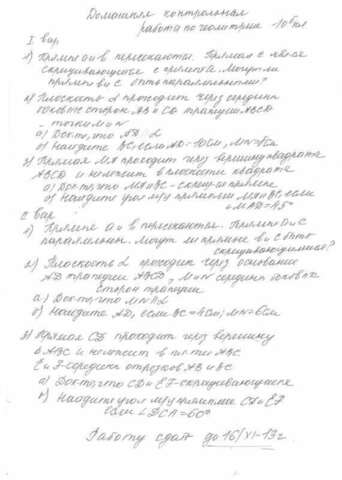 Домашняя контрольная
работа по геометрии -10 кл
I вар
1) Прямые а и в пересекаются. Прямая с явля
скрещивающуюся с прямой а. Могут ли
прямые в и с быть параллельными?
2) Плоскость α проходит через середины
боковых сторон АВ и СD трапеции АВСD
- точки М и N
а) Док-ть, что АD || α
б) Найдите ВС, если АD=10см, MN=8см
3) Прямая МА проходит через вершину квадрата
АВСD и не лежит в плоскости квадрата
а) Док-ть, что МА и ВС - скрещ-ся прямые
б) Найдите угол м/у прямыми МА и ВС, если
∠МАD=45°
2 вар
1) Прямые а и в пересекаются. Прямые а и с
параллельны. Могут ли прямые в и с быть
скрещивающимися?
2) Плоскость α проходит через основание
АD трапеции АВСD, М и N середины боковых
сторон трапеции
а) Док-ть, что MN || α
б) Найдите АD, если ВС=4см, MN=6см
3) Прямая СD проходит через вершину
Δ АВС и не лежит в пл-ти АВС
Е и F-середины отрезков АВ и ВС
а) Док-ть, что СD и EF-скрещивающиеся
б) Найдите угол м/у прямыми СD и EF
если ∠DCA=60°
Работу сдать до 16/XI-13г.